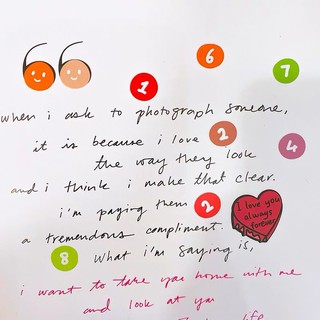 6
7
1
when i ask to photograph someone,
it is because i love 2
the way they look 4
and i think i make that clear.
i'm paying them 2
I love you
always
forever
a tremendous compliment.
8 What i'm saying is,
i want to take you home with me
and look at you
life